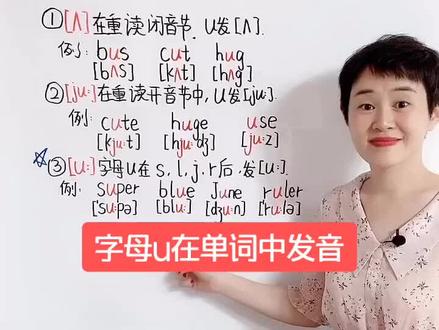 ①[ʌ]在重读闭音节,U发[ʌ].
例: bus cut hug
[bʌs] [kʌt] [hʌg]
②[ju:]在重读开音节中,U发[ju:].
例: cute huge use
[kju:t] [hju:dʒ] [ju:z]
☆③[u:]字母U在s,l,j,r后,发[u:].
例: super blue June ruler
['su:pə] [blu:] [dʒu:n] ['ru:lə]
字母u在单词中发音